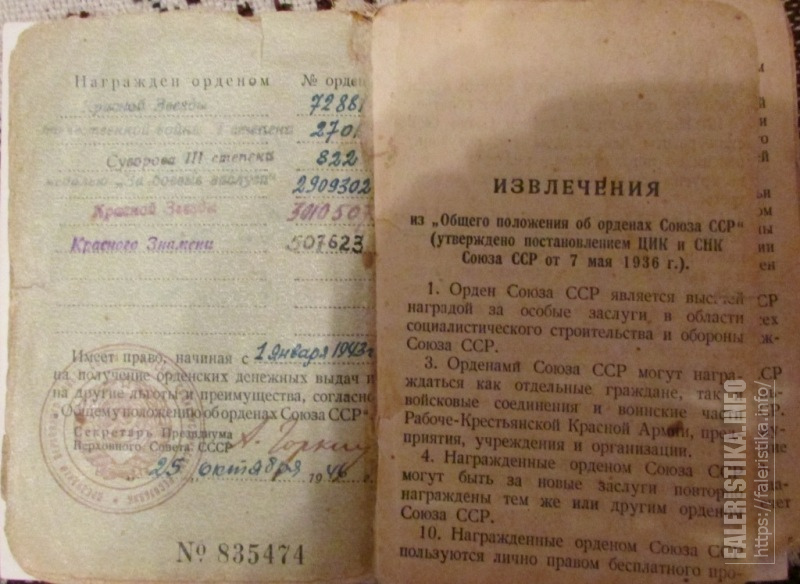 Награжден орденом № орден
Красной Звезды 72881
Отечественной войны I степени 2701
Суворова III степени 822
медалью „За боевые заслуги" 2909302
Красной Звезды 3010507
Красного Знамени 507623
Имеет право, начиная с 1 января 1943 г
на получение орденских денежных выдач и
на другие льготы и преимущества, согласно
„Общему положению об орденах Союза ССР"
Секретарь Президиума
Верховного Совета СССР А. Горкин
25 октября 1946 г.
№ 835474
ИЗВЛЕЧЕНИЯ
из „Общего положения об орденах Союза ССР"
(утверждено постановлением ЦИК и СНК
Союза ССР от 7 мая 1936 г.).
1. Орден Союза ССР является высшей
наградой за особые заслуги в области
социалистического строительства и обороны
Союза ССР.
3. Орденами Союза ССР могут награ-
ждаться как отдельные граждане, так
войсковые соединения и воинские час
Рабоче-Крестьянской Красной Армии, пред
приятия, учреждения и организации.
4. Награжденные орденом Союза СС
могут быть за новые заслуги повтор
награждены тем же или другим орден
Союза ССР.
10. Награжденные орденом Союза СС
пользуются лично правом бесплатного про-
FALERISTIKA.INFO
https://faleristika.info/